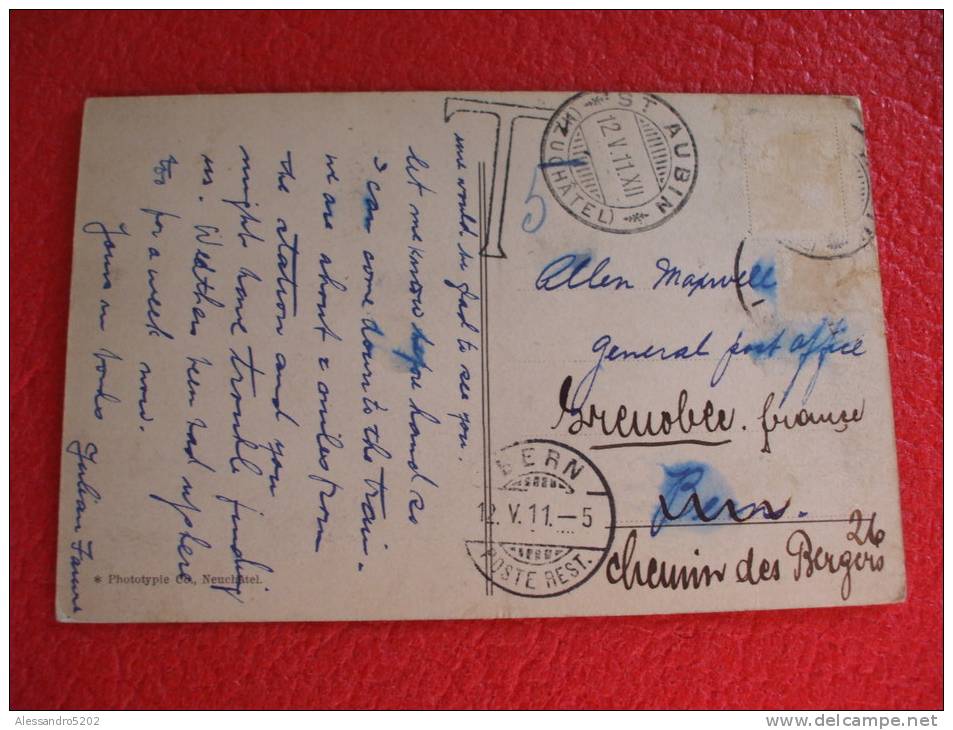 let me know before hand so
I can come down to the train.
we are about 2 miles from
the station and you
might have trouble finding
us. Weather been bad up here
too for a week now.
Yours in books Julian
* Phototypie Co., Neuchâtel.
T
5
ST AUBIN
12.V.11.XII
(NEUCHÂTEL)
Allen Maxwell
General post office
Grenoble. france
Bern.
26
chemin des Bergers
BERN
12.V.11.–5
POSTE REST.
Alessandro5202
www.delcampe.net